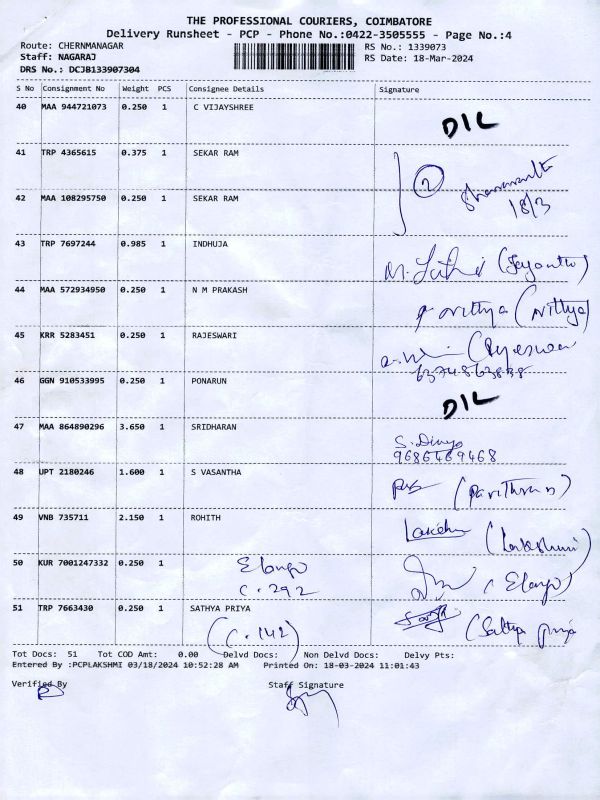 THE PROFESSIONAL COURIERS, COIMBATORE
Delivery Runsheet - PCP - Phone No.:0422-3505555 - Page No.:4
Route: CHERNMANAGAR RS No.: 1339073
Staff: NAGARAJ RS Date: 18-Mar-2024
DRS No.: DCJB133907304
S No Consignment No Weight PCS Consignee Details Signature
40 MAA 944721073 0.250 1 C VIJAYSHREE
DIL
41 TRP 4365615 0.375 1 SEKAR RAM
2
18/3
42 MAA 108295750 0.250 1 SEKAR RAM
43 TRP 7697244 0.985 1 INDHUJA
44 MAA 572934950 0.250 1 N M PRAKASH
45 KRR 5283451 0.250 1 RAJESWARI
46 GGN 910533995 0.250 1 PONARUN
DIL
47 MAA 864890296 3.650 1 SRIDHARAN
S. Divya
9686469468
48 UPT 2180246 1.600 1 S VASANTHA
49 VNB 735711 2.150 1 ROHITH
(Lakshmi)
50 KUR 7001247332 0.250 1 Elango (Elango)
C.292
51 TRP 7663430 0.250 1 SATHYA PRIYA
(C.142) (Sathya priya
Tot Docs: 51 Tot COD Amt: 0.00 Delvd Docs: Non Delvd Docs: Delvy Pts:
Entered By :PCPLAKSHMI 03/18/2024 10:52:28 AM Printed On: 18-03-2024 11:01:43
Verified By Staff Signature